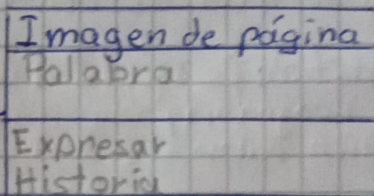 Imagen de página
Palabra
Expresar
Historia